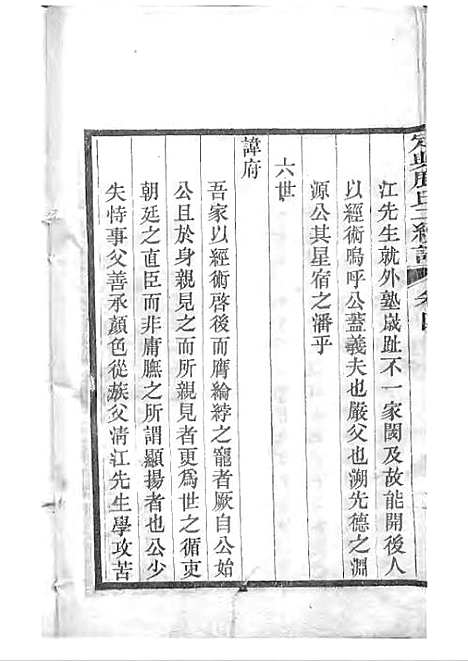 江先生就外塾歲趾不一家閡及故能開後人
以經術嗚呼公蓋義夫也嚴父也溯先德之淵
源公其星宿之潘乎
六世
諱府
吾家以經術啓後而膺綸綍之寵者厥自公始
公且於身親見之而所親見者更爲世之循吏
朝廷之直臣而非庸臕之所謂顯揚者也公少
失恃事父善承顏色從族父清江先生學攻苦